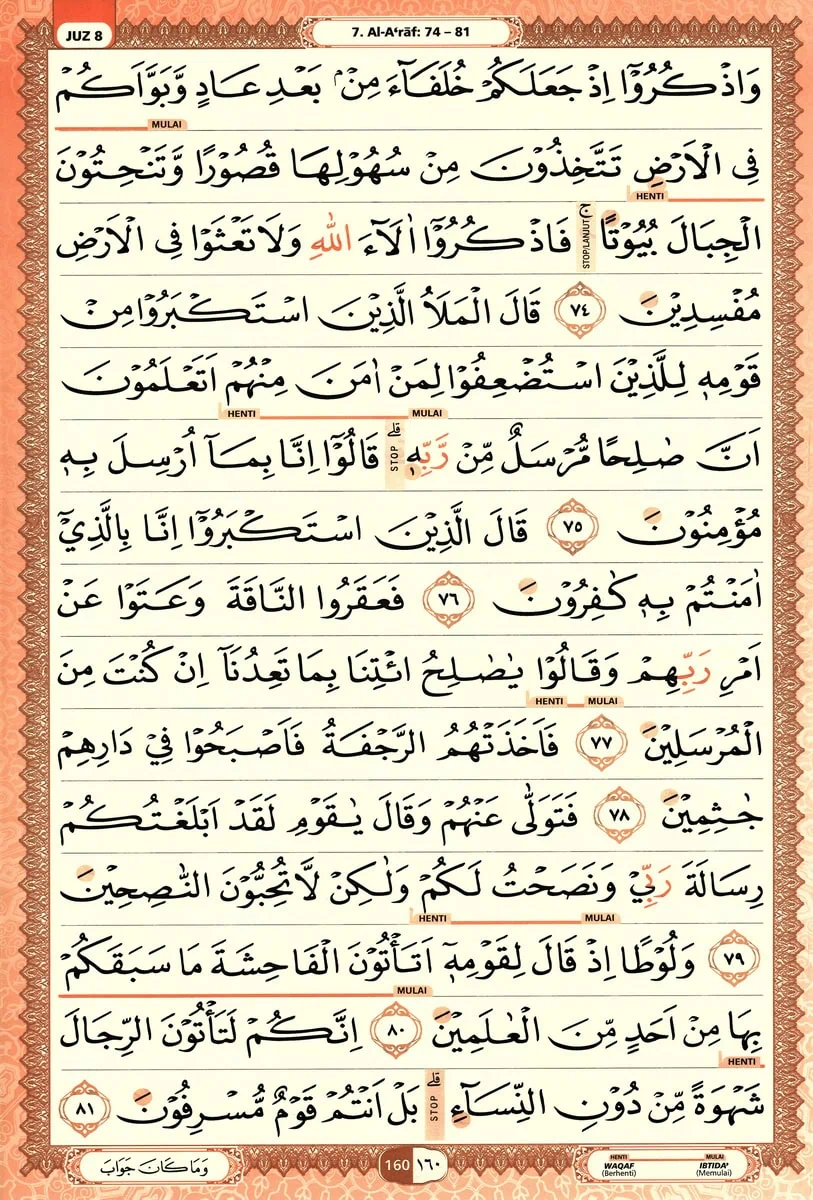 JUZ 8
7. Al-A‘rāf: 74 – 81
وَاذْكُرُوْٓا اِذْ جَعَلَكُمْ خُلَفَاۤءَ مِنْۢ بَعْدِ عَادٍ وَّبَوَّاَكُمْ
MULAI
فِى الْاَرْضِ تَتَّخِذُوْنَ مِنْ سُهُوْلِهَا قُصُوْرًا وَّتَنْحِتُوْنَ
HENTI
الْجِبَالَ بُيُوْتًا ۚ STOP/LANJUT فَاذْكُرُوْٓا اٰلَاۤءَ اللّٰهِ وَلَا تَعْثَوْا فِى الْاَرْضِ
مُفْسِدِيْنَ ٧٤ قَالَ الْمَلَاُ الَّذِيْنَ اسْتَكْبَرُوْا مِنْ
قَوْمِهٖ لِلَّذِيْنَ اسْتُضْعِفُوْا لِمَنْ اٰمَنَ مِنْهُمْ اَتَعْلَمُوْنَ
MULAI HENTI
اَنَّ صٰلِحًا مُّرْسَلٌ مِّنْ رَّبِّهٖ ۗ STOP قَالُوْٓا اِنَّا بِمَآ اُرْسِلَ بِهٖ
مُؤْمِنُوْنَ ٧٥ قَالَ الَّذِيْنَ اسْتَكْبَرُوْٓا اِنَّا بِالَّذِيْٓ
اٰمَنْتُمْ بِهٖ كٰفِرُوْنَ ٧٦ فَعَقَرُوا النَّاقَةَ وَعَتَوْا عَنْ
اَمْرِ رَبِّهِمْ وَقَالُوْا يٰصٰلِحُ ائْتِنَا بِمَا تَعِدُنَآ اِنْ كُنْتَ مِنَ
MULAI HENTI
الْمُرْسَلِيْنَ ٧٧ فَاَخَذَتْهُمُ الرَّجْفَةُ فَاَصْبَحُوْا فِيْ دَارِهِمْ
جٰثِمِيْنَ ٧٨ فَتَوَلّٰى عَنْهُمْ وَقَالَ يٰقَوْمِ لَقَدْ اَبْلَغْتُكُمْ
رِسَالَةَ رَبِّيْ وَنَصَحْتُ لَكُمْ وَلٰكِنْ لَّا تُحِبُّوْنَ النّٰصِحِيْنَ
MULAI HENTI
٧٩ وَلُوْطًا اِذْ قَالَ لِقَوْمِهٖٓ اَتَأْتُوْنَ الْفَاحِشَةَ مَا سَبَقَكُمْ
MULAI
بِهَا مِنْ اَحَدٍ مِّنَ الْعٰلَمِيْنَ ٨٠ اِنَّكُمْ لَتَأْتُوْنَ الرِّجَالَ
HENTI
شَهْوَةً مِّنْ دُوْنِ النِّسَاۤءِ ۗ STOP بَلْ اَنْتُمْ قَوْمٌ مُّسْرِفُوْنَ ٨١
وَمَا كَانَ جَوَابَ
160 ١٦٠
HENTI MULAI
WAQAF IBTIDA'
(Berhenti) (Memulai)